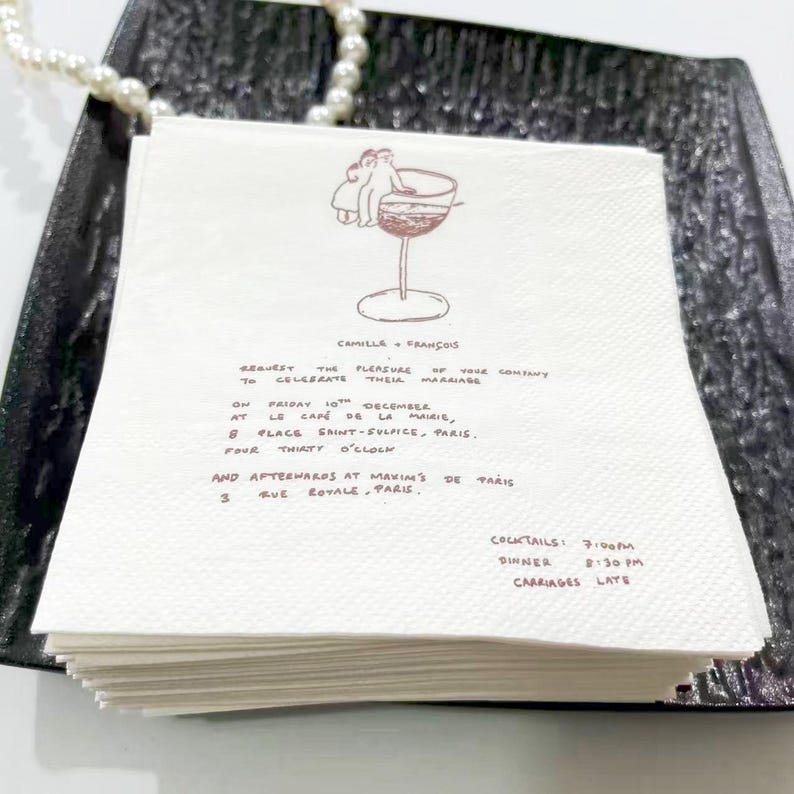 CAMILLE + FRANÇOIS
REQUEST THE PLEASURE OF YOUR COMPANY
TO CELEBRATE THEIR MARRIAGE
ON FRIDAY 10TH DECEMBER
AT LE CAFÉ DE LA MAIRIE,
8 PLACE SAINT-SULPICE, PARIS.
FOUR THIRTY O'CLOCK
AND AFTERWARDS AT MAXIM'S DE PARIS
3 RUE ROYALE, PARIS.
COCKTAILS: 7:00PM
DINNER 8:30PM
CARRIAGES LATE